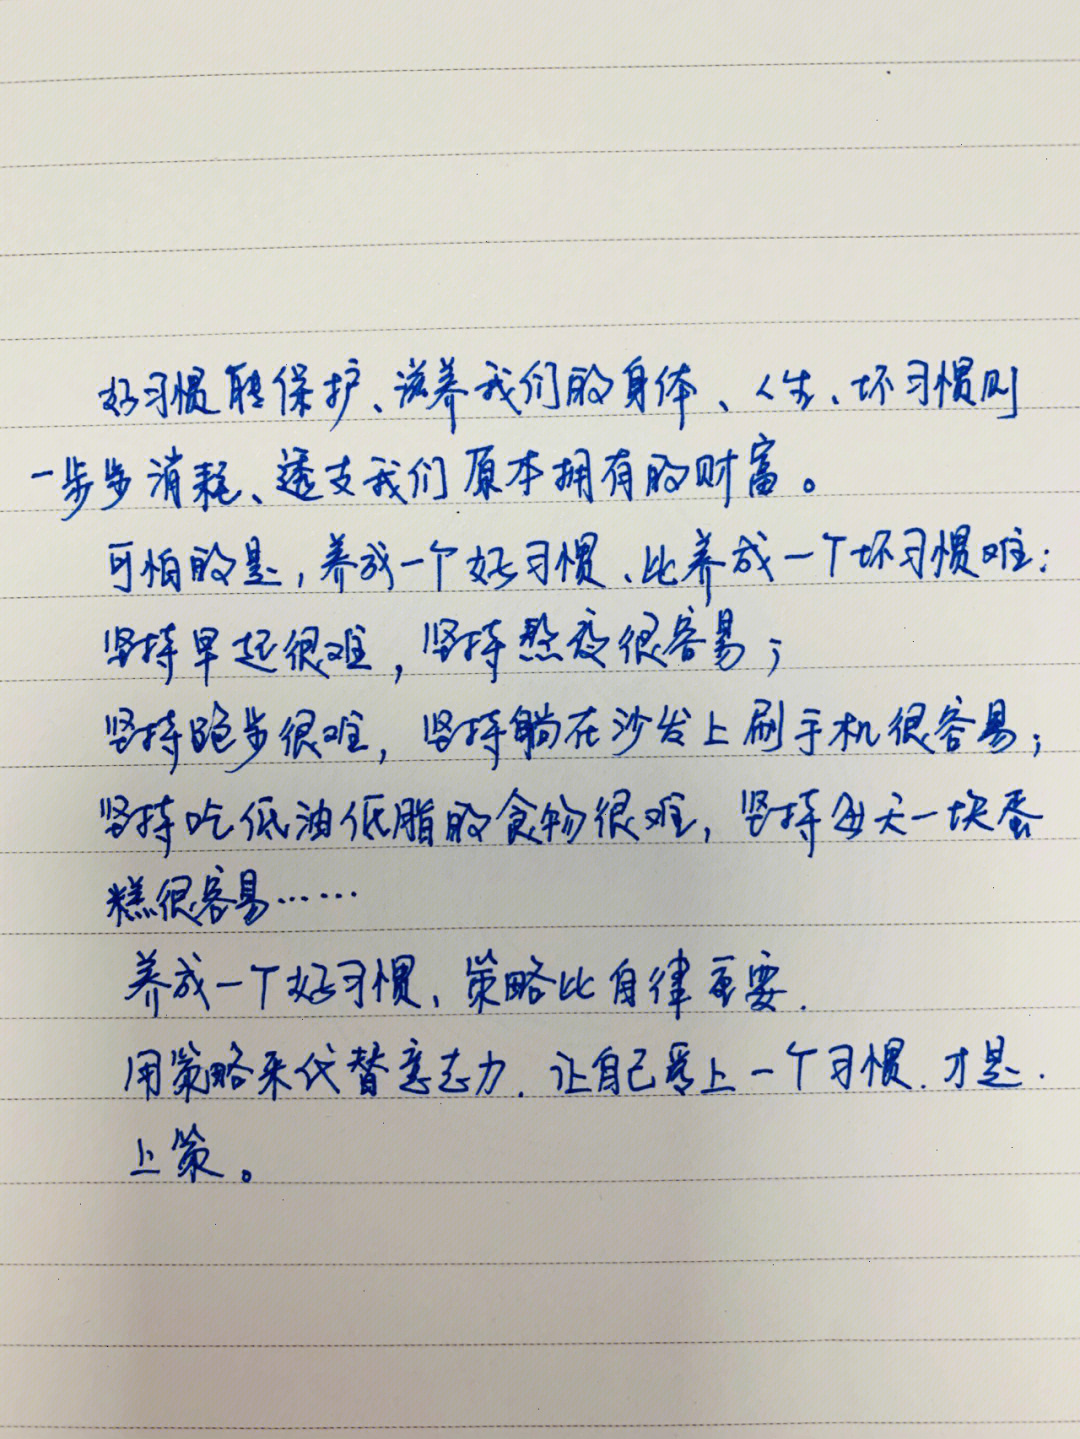 好习惯能保护、滋养我们的身体、人生、坏习惯则
一步步消耗、透支我们原本拥有的财富。
可怕的是，养成一个好习惯、比养成一个坏习惯难：
坚持早起很难，坚持熬夜很容易；
坚持跑步很难，坚持躺在沙发上刷手机很容易；
坚持吃低油低脂的食物很难，坚持每天一块蛋
糕很容易……
养成一个好习惯、策略比自律重要.
用策略来代替意志力.让自己爱上一个习惯.才是.
上策。